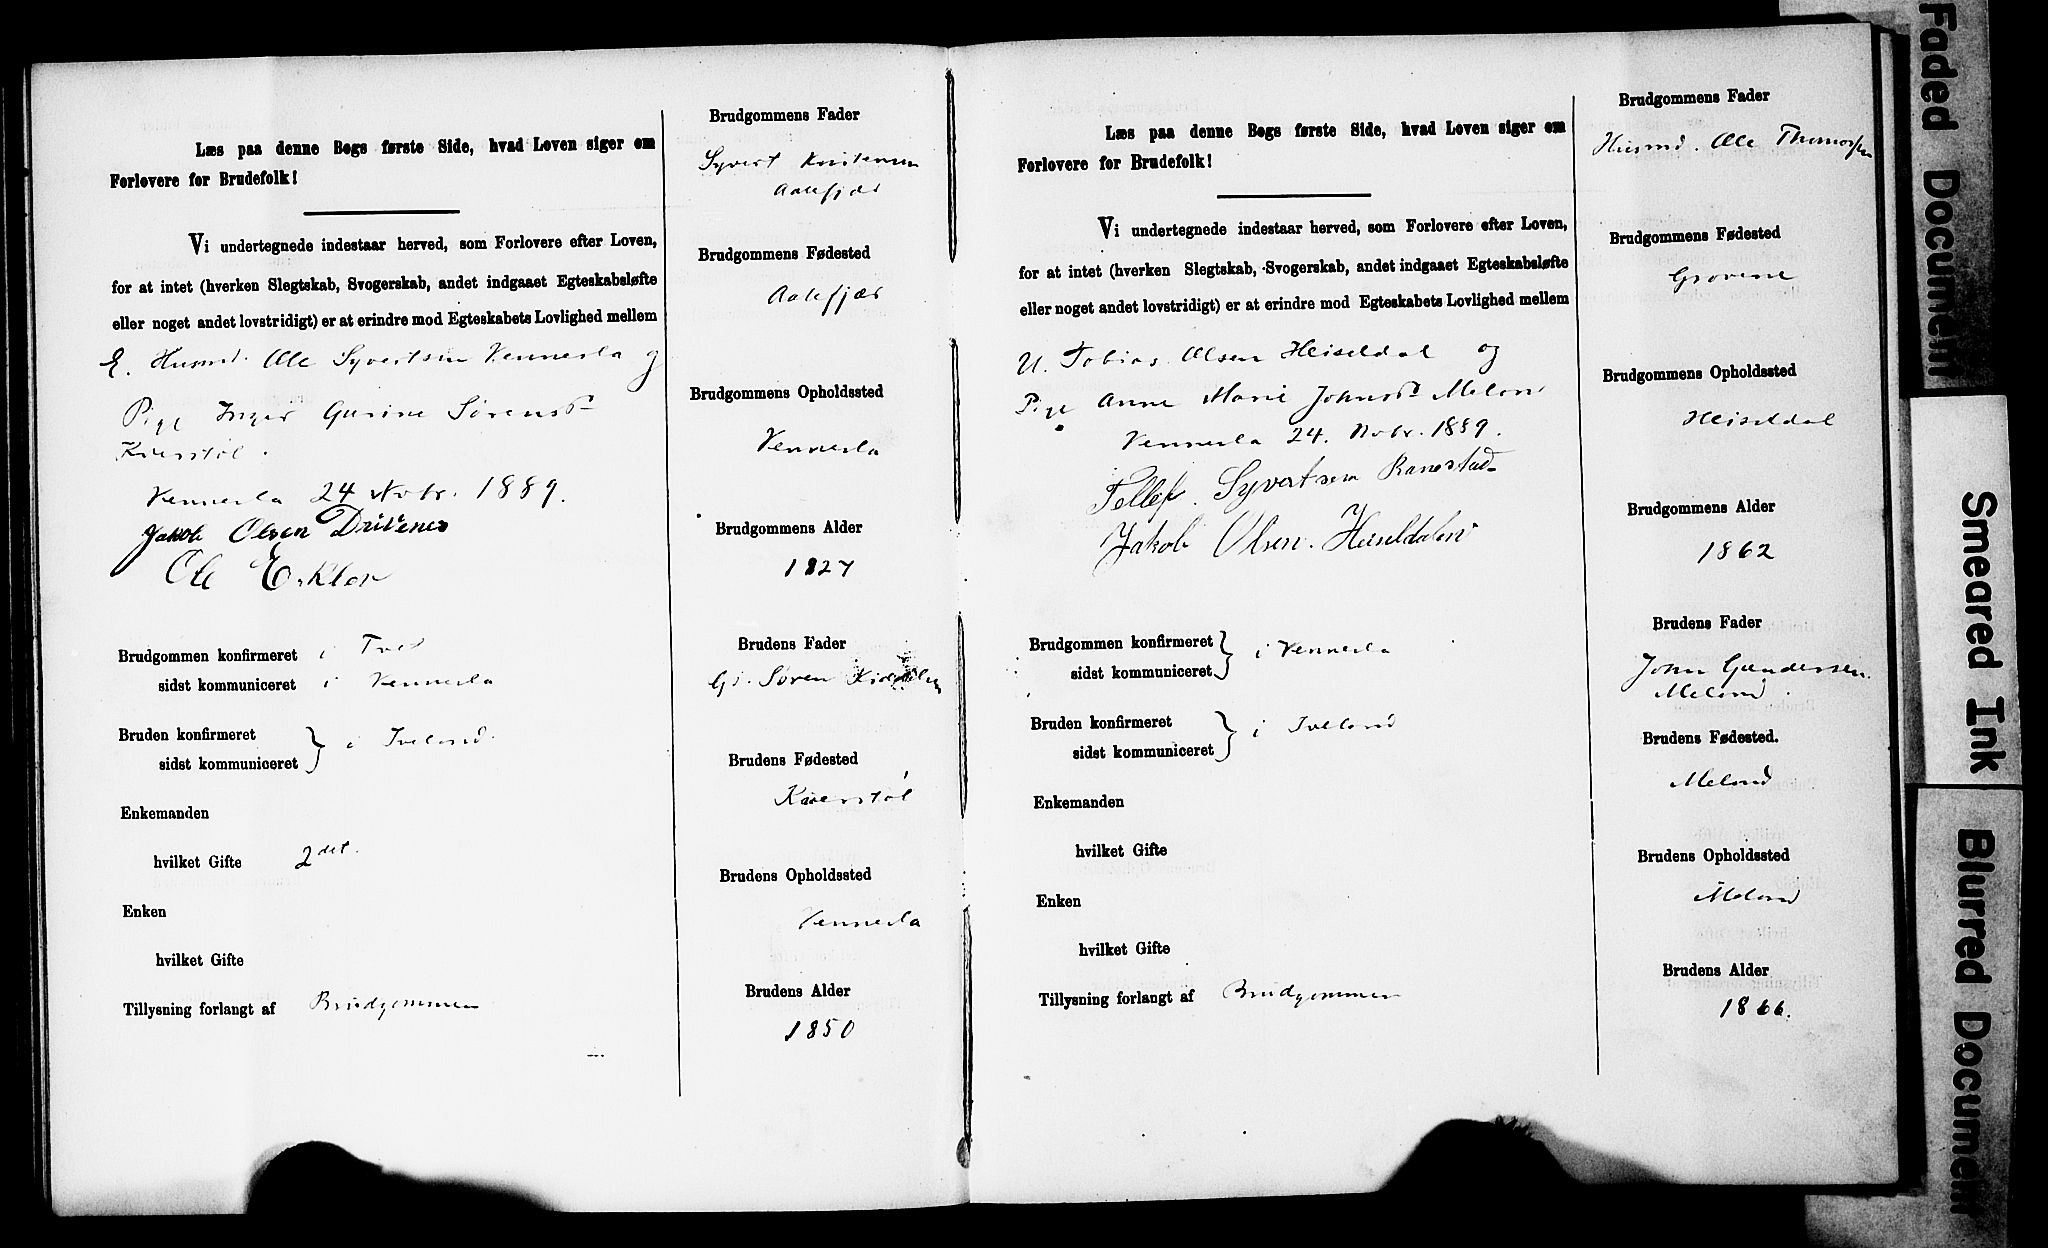 Læs paa denne Bogs første Side, hvad Loven siger om
Forlovere for Brudefolk!
Vi undertegnede indestaar herved, som Forlovere efter Loven,
for at intet (hverken Slegtskab, Svogerskab, andet indgaaet Egteskabsløfte
eller noget andet lovstridigt) er at erindre mod Egteskabets Lovlighed mellem
E. Husmd. Ole Syvertsen Vennesla og
Pige Inger Gurine Sørensd
Vennesla 24 Novbr. 1889.
Jakob Olsen Drivenes
Ole
Brudgommen konfirmeret i Tvet
sidst kommuniceret i Vennesla
Bruden konfirmeret
sidst kommuniceret } i Iveland.
Enkemanden
hvilket Gifte 2det.
Enken
hvilket Gifte
Tillysning forlangt af Brudgommen
Brudgommens Fader
Syvert
Aalefjær
Brudgommens Fødested
Aalefjær
Brudgommens Opholdssted
Vennesla
Brudgommens Alder
1827
Brudens Fader
Søren
Brudens Fødested
Brudens Opholdssted
Vennesla
Brudens Alder
1850
Læs paa denne Bogs første Side, hvad Loven siger om
Forlovere for Brudefolk!
Vi undertegnede indestaar herved, som Forlovere efter Loven,
for at intet (hverken Slegtskab, Svogerskab, andet indgaaet Egteskabsløfte
eller noget andet lovstridigt) er at erindre mod Egteskabets Lovlighed mellem
U. Tobias Olsen Heiseldal og
Pige Anne Marie Johnsd. Meland
Vennesla 24. Novbr. 1889.
Tellef Syvertsen
Jakob Olsen Heiseldalen
Brudgommen konfirmeret
sidst kommuniceret } i Vennesla
Bruden konfirmeret
sidst kommuniceret } i Iveland
Enkemanden
hvilket Gifte
Enken
hvilket Gifte
Tillysning forlangt af Brudgommen
Brudgommens Fader
Husmd. Ole Thomassen
Brudgommens Fødested
Grovene
Brudgommens Opholdssted
Heiseldal
Brudgommens Alder
1862
Brudens Fader
John Gundersen
Meland.
Brudens Fødested.
Meland
Brudens Opholdssted
Meland
Brudens Alder
1866.
Faded Document
Smeared Ink
Blurred Document